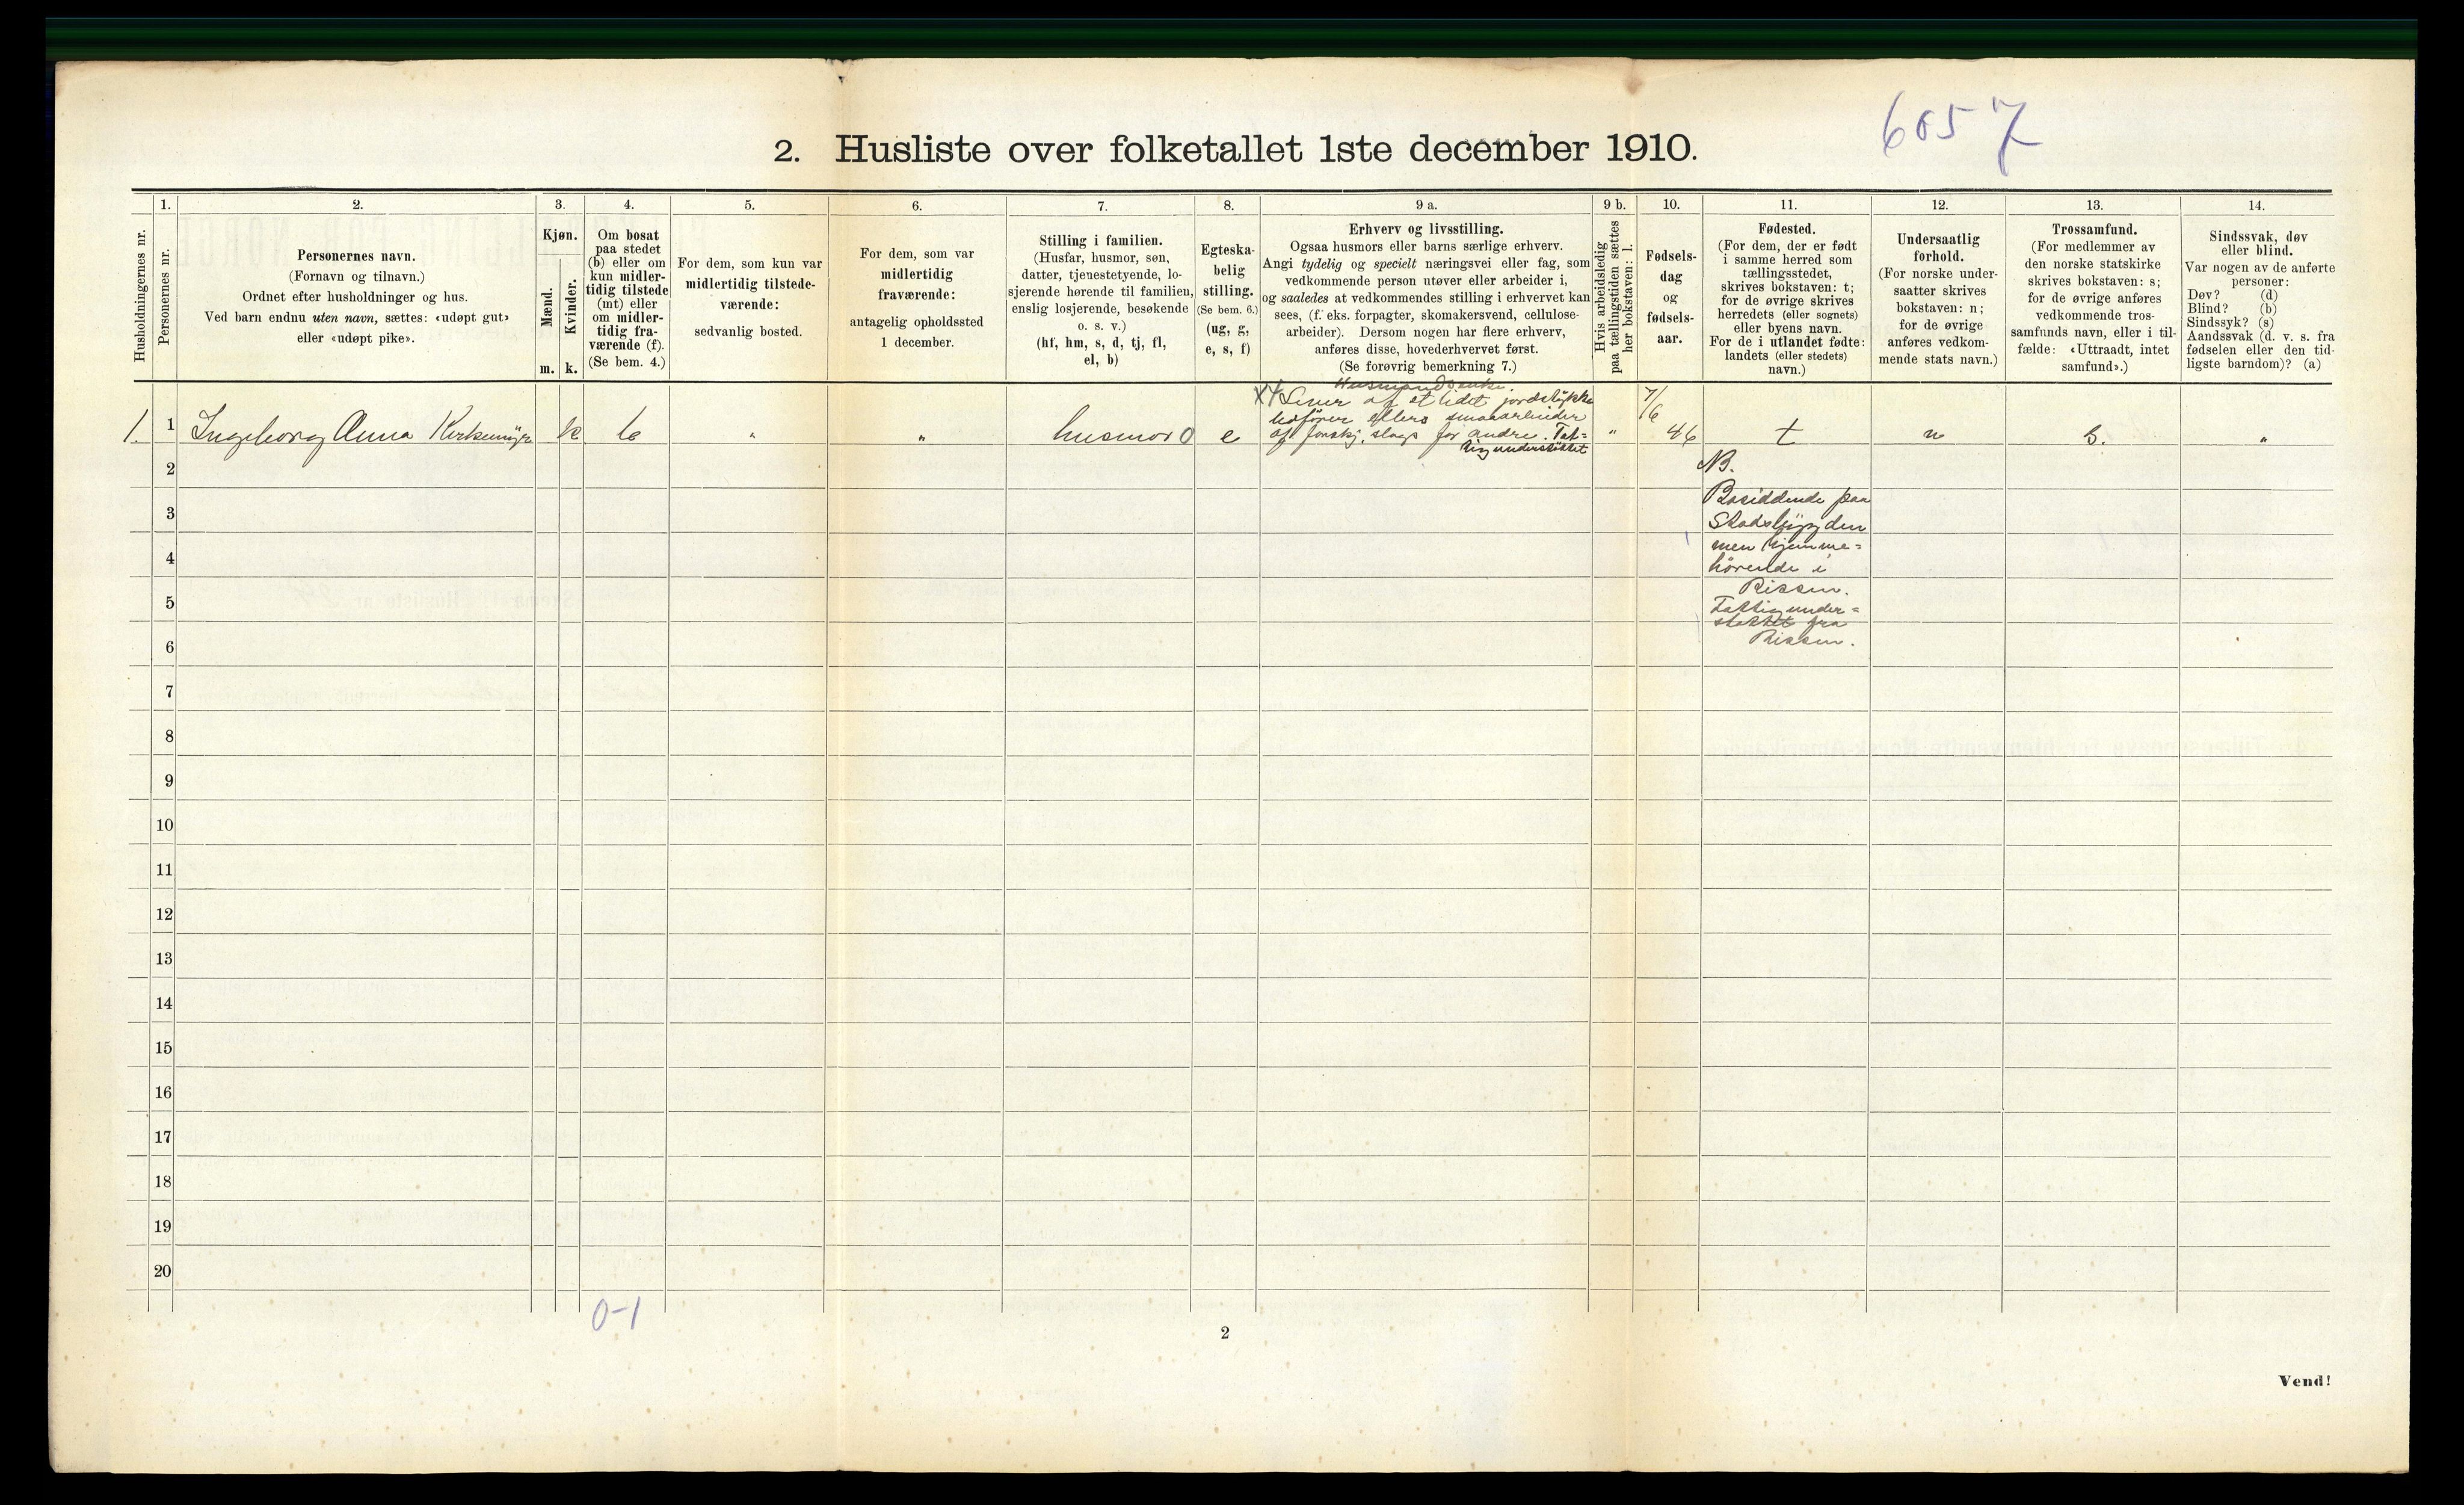 6057
2. Husliste over folketallet 1ste december 1910.
Husholdningernes nr.
1.
Personernes nr.
2.
Personernes navn.
(Fornavn og tilnavn.)
Ordnet efter husholdninger og hus.
Ved barn endnu uten navn, sættes: «udøpt gut»
eller «udøpt pike».
3.
Kjøn.
Mænd.
Kvinder.
m. k.
4.
Om bosat
paa stedet
(b) eller om
kun midler-
tidig tilstede
(mt) eller
om midler-
tidig fra-
værende (f).
(Se bem. 4.)
5.
For dem, som kun var
midlertidig tilstede-
værende:
sedvanlig bosted.
6.
For dem, som var
midlertidig
fraværende:
antagelig opholdssted
1 december.
7.
Stilling i familien.
(Husfar, husmor, søn,
datter, tjenestetyende, lo-
sjerende hørende til familien,
enslig losjerende, besøkende
o. s. v.)
(hf, hm, s, d, tj, fl,
el, b)
8.
Egteska-
belig
stilling.
(Se bem. 6.)
(ug, g,
e, s, f)
9 a.
Erhverv og livsstilling.
Ogsaa husmors eller barns særlige erhverv.
Angi tydelig og specielt næringsvei eller fag, som
vedkommende person utøver eller arbeider i,
og saaledes at vedkommendes stilling i erhvervet kan
sees, (f. eks. forpagter, skomakersvend, cellulose-
arbeider). Dersom nogen har flere erhverv,
anføres disse, hovederhvervet først.
(Se forøvrig bemerkning 7.)
9 b.
Hvis arbeidsledig
paa tællingstiden sættes
her bokstaven: l.
10.
Fødsels-
dag
og
fødsels-
aar.
11.
Fødested.
(For dem, der er født
i samme herred som
tællingsstedet,
skrives bokstaven: t;
for de øvrige skrives
herredets (eller sognets)
eller byens navn.
For de i utlandet fødte:
landets (eller stedets)
navn.)
12.
Undersaatlig
forhold.
(For norske under-
saatter skrives
bokstaven: n;
for de øvrige
anføres vedkom-
mende stats navn.)
13.
Trossamfund.
(For medlemmer av
den norske statskirke
skrives bokstaven: s;
for de øvrige anføres
vedkommende tros-
samfunds navn, eller i til-
fælde: «Uttraadt, intet
samfund».)
14.
Sindssvak, døv
eller blind.
Var nogen av de anførte
personer:
Døv? (d)
Blind? (b)
Sindssyk? (s)
Aandssvak (d. v. s. fra
fødselen eller den tid-
ligste barndom)? (a)
Husmandsenke.
Lever af et lidet jordstykke
udfører ellers smaaarbeider
af forskj. slags for andre. Fat-
tigunderstøttet
1. 1 Ingeborg Anna Kirkemyr k b " " husmor 0 e " 7/6 46 t n s. "
NB.
Bosiddende paa
Stadsbygden
men hjemme-
hørende i
Rissen.
Fattigunder-
støttet fra
Rissen.
2
3
4
5
6
7
8
9
10
11
12
13
14
15
16
17
18
19
20
0-1
2
Vend!